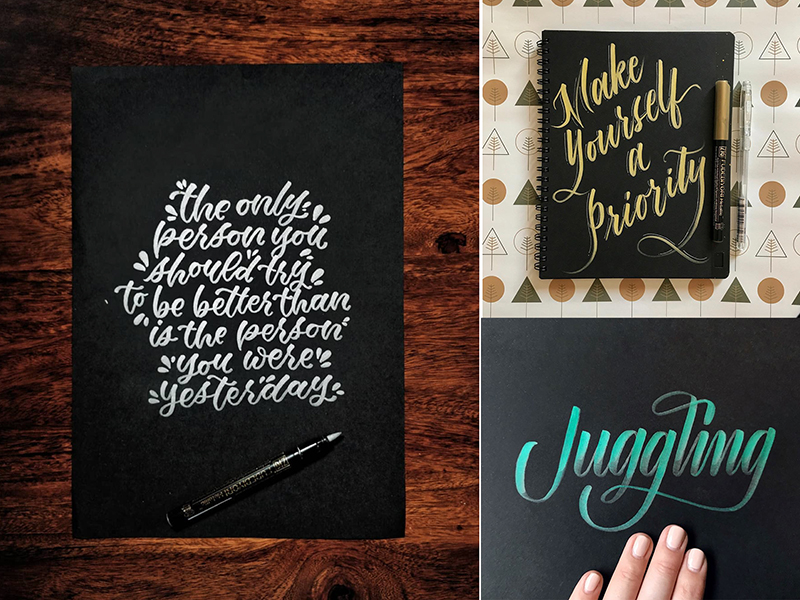 the only
person you
should try
to be better than
is the person
you were
yesterday
Make
Yourself
a
Priority
Juggling